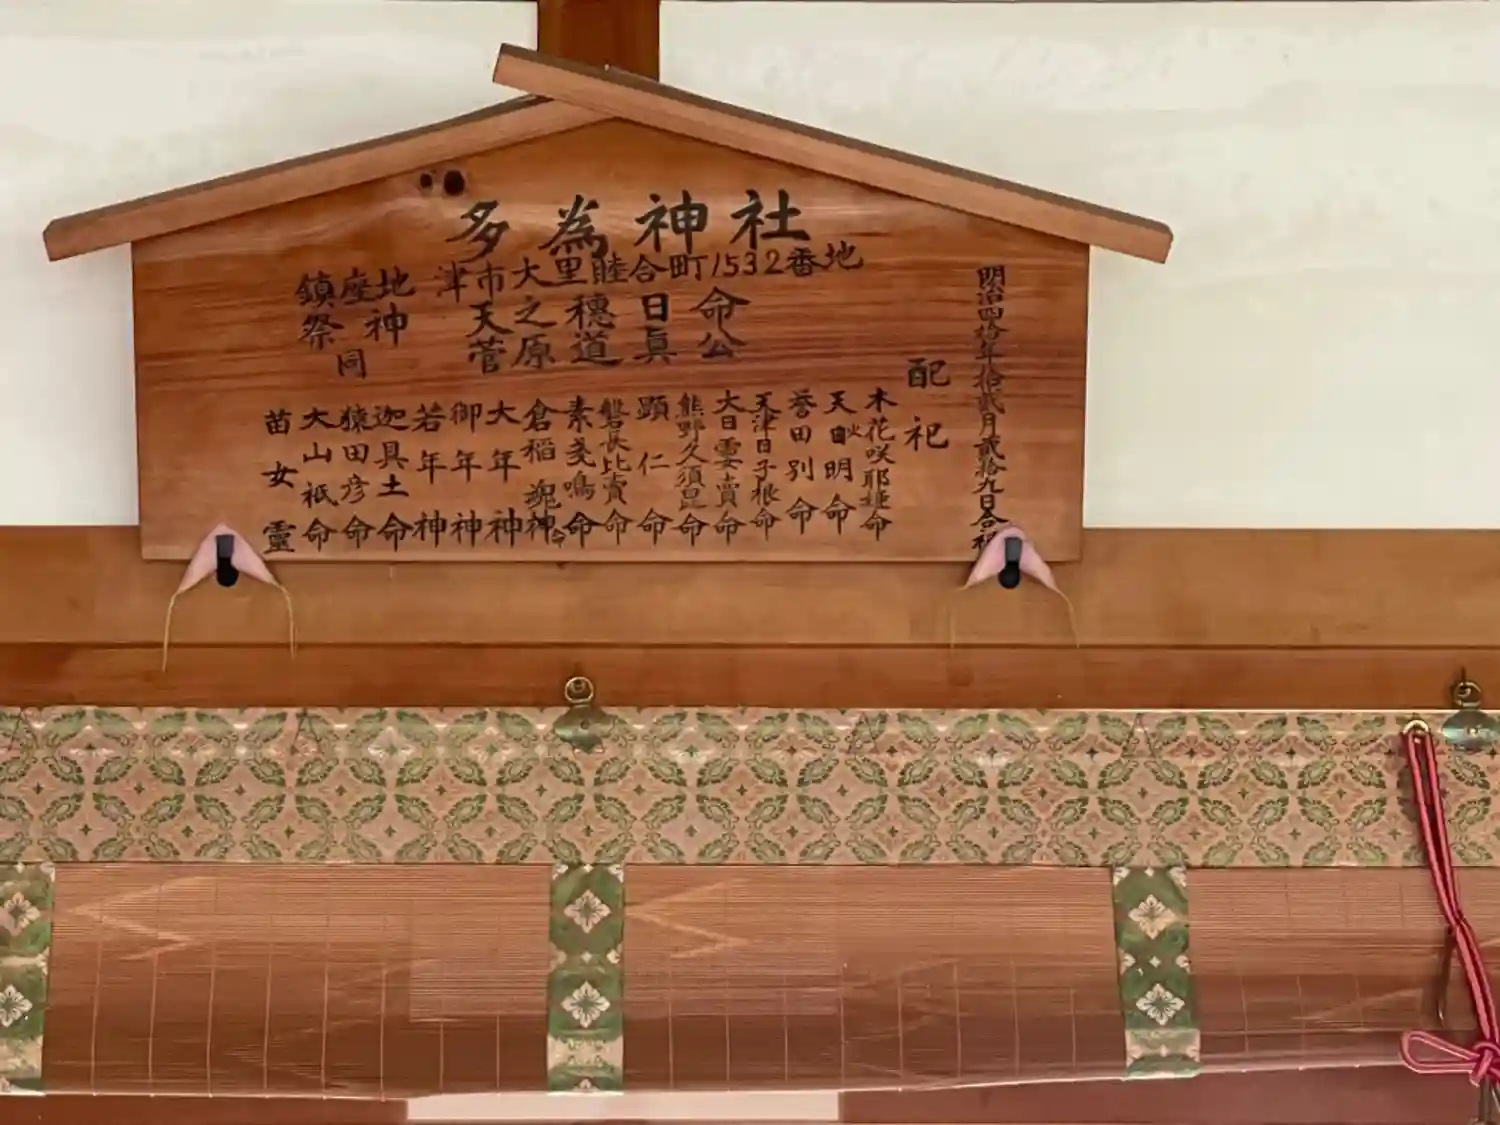 多為神社
鎮座地 津市大里睦合町1532番地
祭神 天之穂日命
同 菅原道眞公
明治四拾年拾貳月貳拾九日合祀
配祀
木花咲耶姫命
天明命
誉田別命
天津日子根命
大日孁賣命
熊野久須毘命
顕仁命
磐長比賣命
素戔鳴命
倉稲魂神
大年神
御年神
若年神
迦具土命
猿田彦命
大山祇命
苗女靈